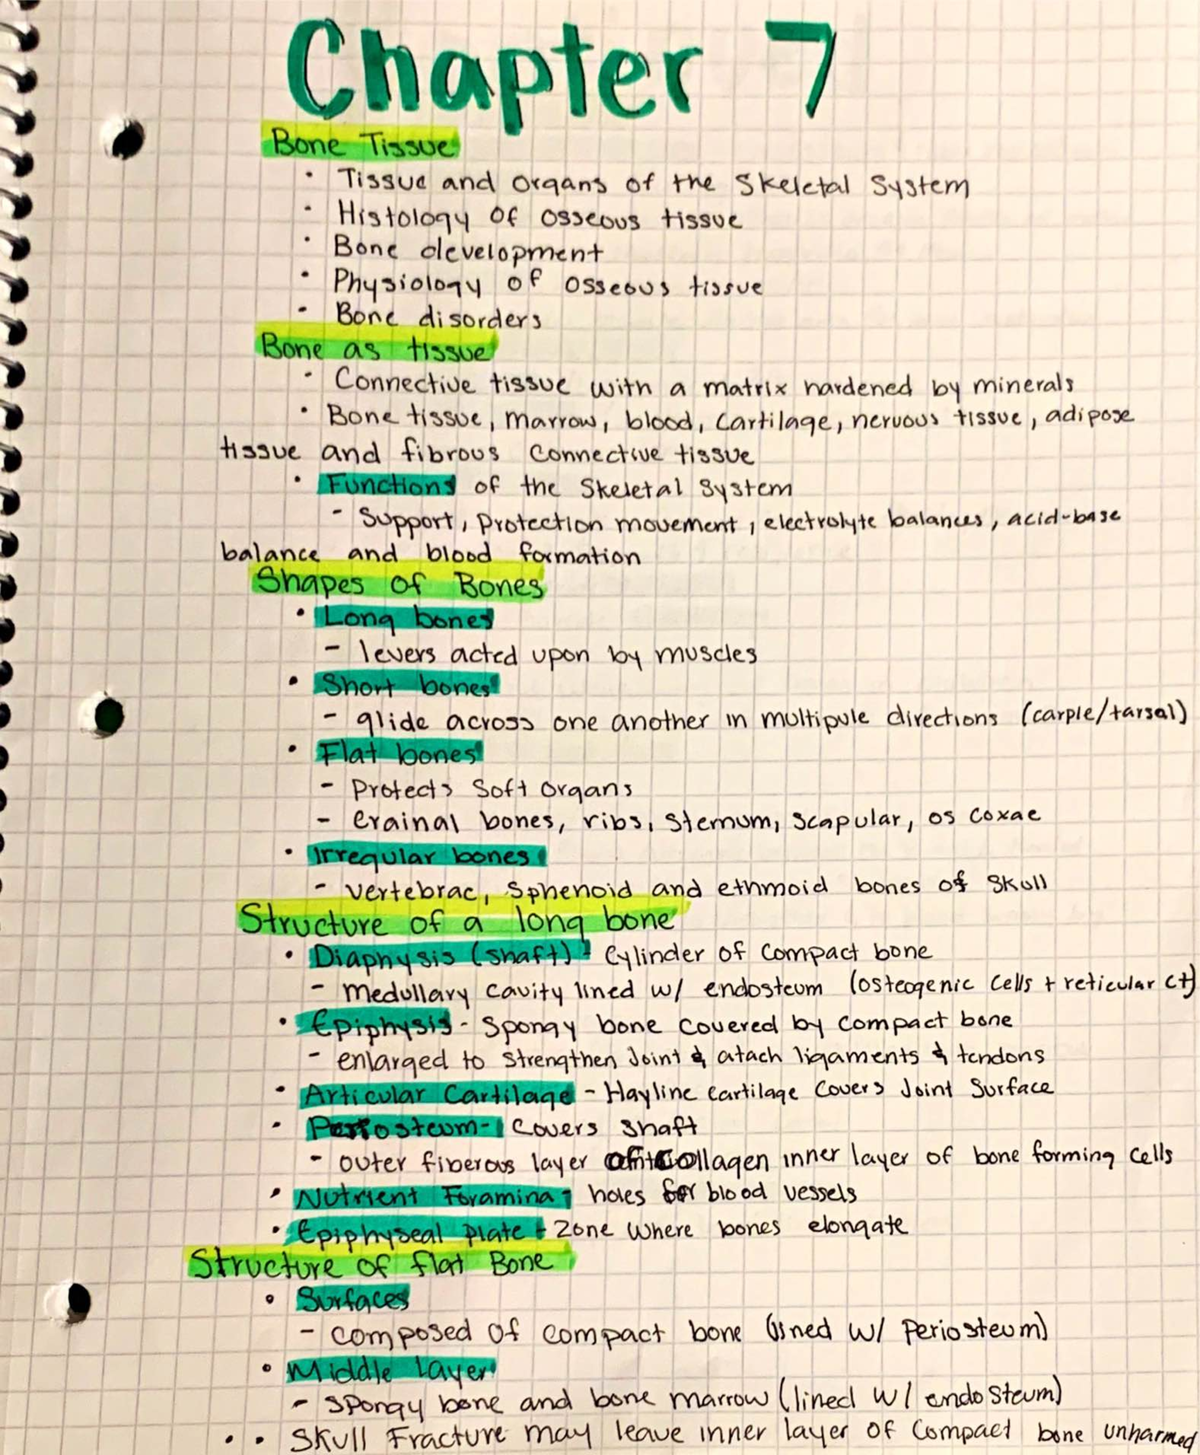 Chapter 7
Bone Tissue
· Tissue and organs of the Skeletal System
· Histology of osseous tissue
· Bone development
· Physiology of osseous tissue
· Bone disorders
Bone as tissue
· Connective tissue with a matrix hardened by minerals
· Bone tissue, marrow, blood, cartilage, nervous tissue, adipose
tissue and fibrous connective tissue
· Functions of the Skeletal System
- Support, Protection movement, electrolyte balances, acid-base
balance and blood formation
Shapes of Bones
· Long bones
- levers acted upon by muscles
· Short bones
- glide across one another in multipule directions (carple/tarsal)
· Flat bones
- Protects Soft organs
- crainal bones, ribs, sternum, scapular, os coxae
· Irregular bones
- vertebrae, Sphenoid and ethmoid bones of Skull
Structure of a long bone
· Diaphysis (shaft) - Cylinder of compact bone
- medullary cavity lined w/ endosteum (osteogenic cells + reticular ct)
· Epiphysis - Spongy bone covered by compact bone
- enlarged to strengthen Joint & atach ligaments & tendons
· Articular Cartilage - Hayline cartilage covers Joint Surface
· Periosteum - Covers shaft
- outer fiberous layer of collagen inner layer of bone forming cells
· Nutrient Foramina - holes for blood vessels
· Epiphyseal plate - Zone where bones elongate
Structure of flat Bone
· Surfaces
- composed of compact bone (lined w/ Periosteum)
· Middle Layer
- Spongy bone and bone marrow (lined w/ endosteum)
· · Skull Fracture may leave inner layer of Compact bone unharmed